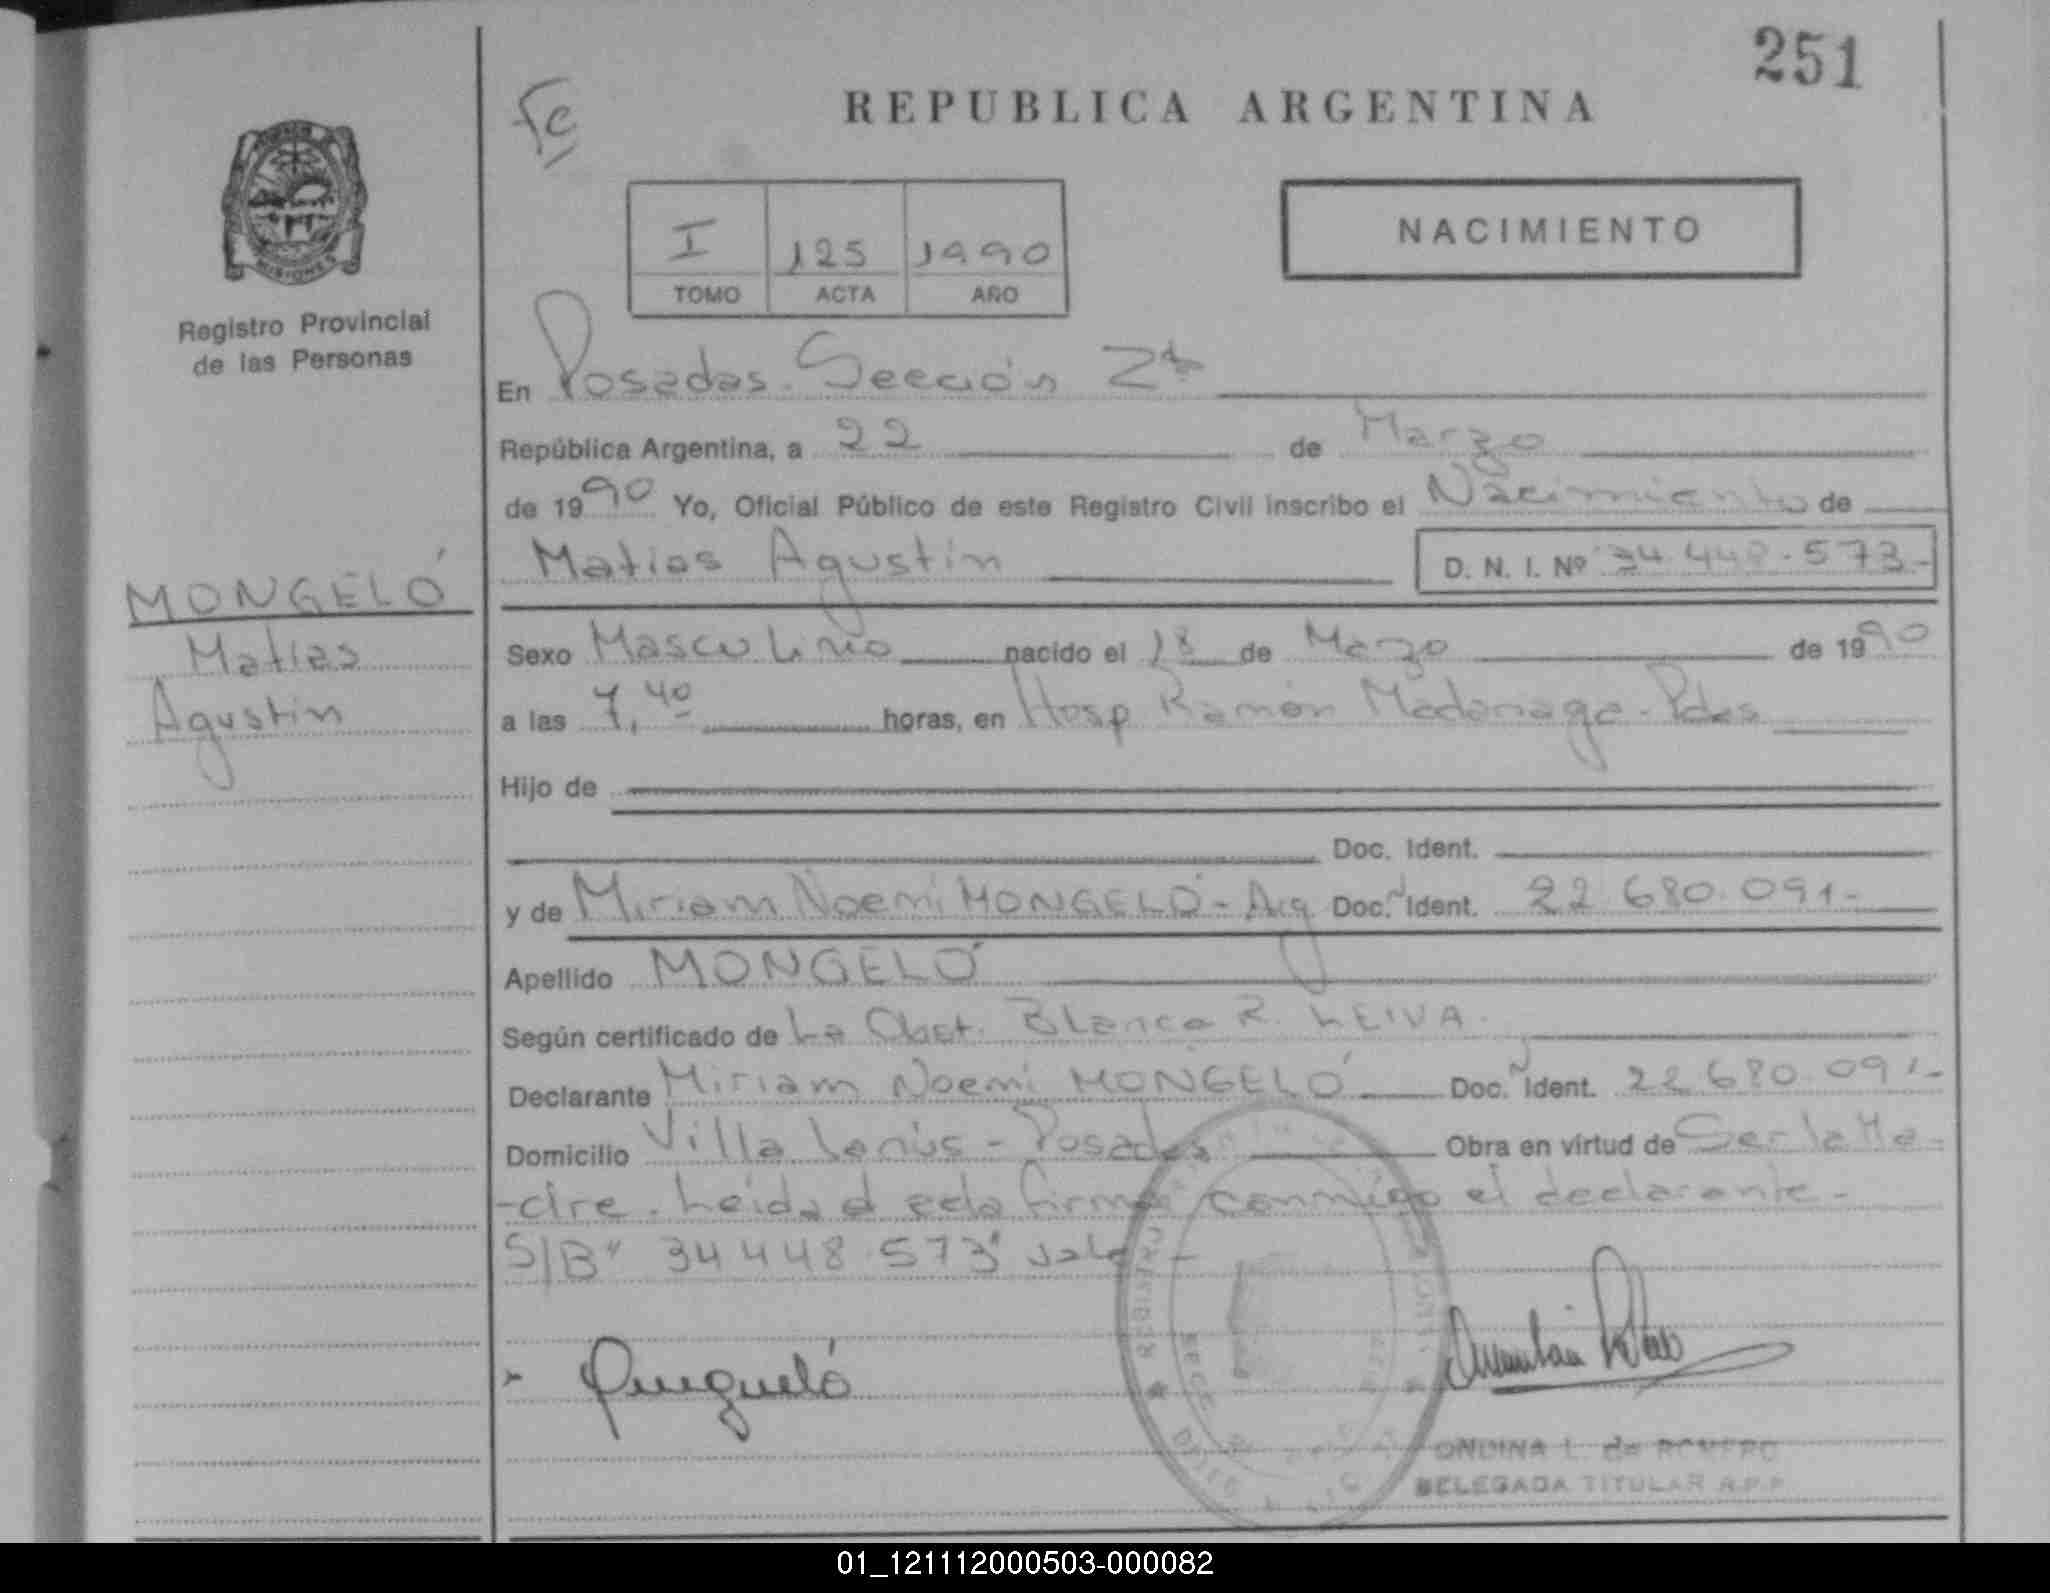 251
Fc
REPUBLICA ARGENTINA
MISIONES
Registro Provincial
de las Personas
I 125 1990
TOMO ACTA AÑO
NACIMIENTO
En Posadas. Sección 2ª
República Argentina, a 22 de Marzo
de 1990 Yo, Oficial Público de este Registro Civil inscribo el Nacimiento de
Matias Agustin D. N. I. Nº 34.448.573-
MONGELÓ
Matias
Agustin
Sexo Masculino nacido el 18 de Marzo de 1990
a las 7,40 horas, en Hosp Ramón Madariaga - Pdas
Hijo de
Doc. Ident.
y de Miriam Noemi MONGELÓ - Arg Doc. Ident. 22.680.091-
Apellido MONGELÓ
Según certificado de La Obst. Blanca R. LEIVA.
Declarante Miriam Noemi MONGELÓ Doc. Ident. 22.680.091-
Domicilio Villa Lanús - Posadas Obra en virtud de Ser la Ma-
-dre. Leida el acta firma conmigo el declarante -
S/B" 34.448.573" vale -
REGISTRO
ONDINA L. de ROMERO
DELEGADA TITULAR R.P.P
01_121112000503-000082